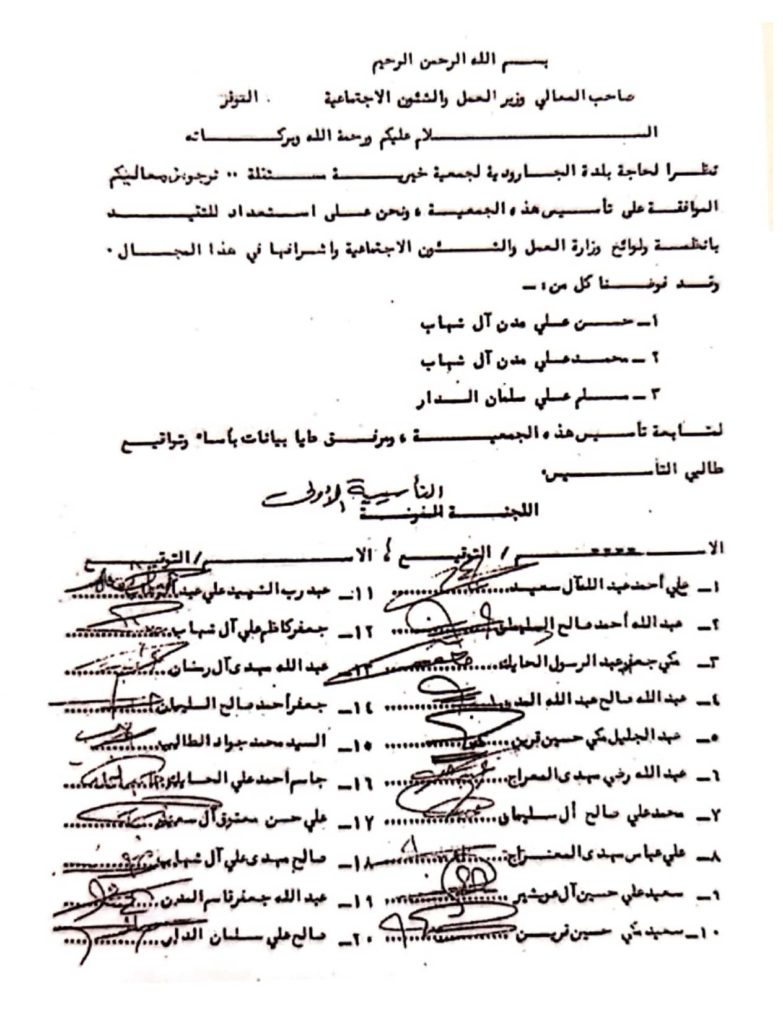 بسم الله الرحمن الرحيم
صاحب المعالي وزير العمل والشئون الاجتماعية . الموقر
السلام عليكم ورحمة الله وبركاته
نظرا لحاجة بلدة الجارودية لجمعية خيرية مستقلة .. نرجو من معاليكم
الموافقة على تأسيس هذه الجمعية ، ونحن على استعداد للتقيد
بانظمة ولوائح وزارة العمل والشئون الاجتماعية واشرافها في هذا المجال .
وقد فوضنا كل من :ـ
١ـ حسن علي مدن آل شهاب
٢ ـ محمد علي مدن آل شهاب
٣ ـ سلم علي سلمان الدار
لمتابعة تأسيس هذه الجمعية ، ومرفق طيا بيانات بأسماء وتواقيع
طالبي التأسيس.
التأسيسية الأولى
اللجنة المفوضة
الاسم / التوقيع ، الاسم / التوقيع
١ـ علي أحمد عبد الله آل سعيد ١١ـ عبد رب الشهيد علي
٢ـ عبد الله أحمد صالح السليمان ١٢ـ جعفر كاظم علي آل شهاب
٣ـ مكي جعفر عبد الرسول الحايك ١٣ـ عبد الله مهدي آل رضان
٤ـ عبد الله صالح عبد الله المدن ١٤ـ جعفر أحمد صالح السليمان
٥ـ عبد الجليل مكي حسين قرين ١٥ـ السيد محمد جواد الطالب
٦ـ عبد الله رضي مهدي المعراج ١٦ـ جاسم أحمد علي الحايك
٧ـ محمد علي صالح آل سليمان ١٧ـ علي حسن معتوق آل سعيد
٨ـ علي عباس مهدي المعراج ١٨ـ صالح مهدي علي آل شهاب
٩ـ سعيد علي حسين آل عو شير ١٩ـ عبد الله جعفر قاسم المدن
١٠ـ سعيد مكي حسين قريـن ٢٠ـ صالح علي سلمان الدار